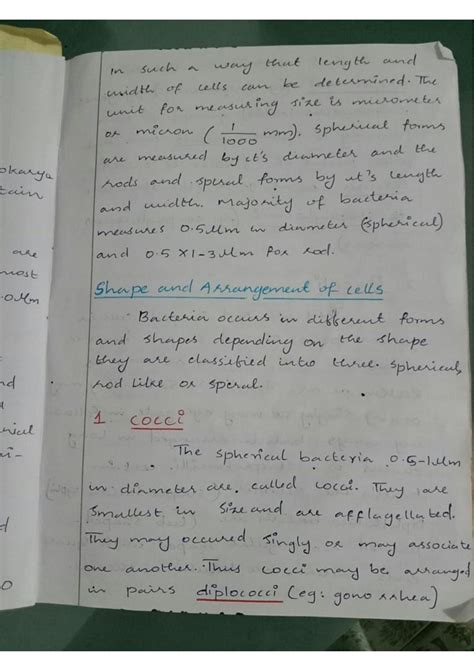 In such a way that length and
width of cells can be determined. The
unit for measuring size is micrometer
or micron ( 1/1000 mm). Spherical forms
are measured by it's diameter and the
rods and spiral forms by it's length
and width. Majority of bacteria
measures 0.5 Mm in diameter (spherical)
and 0.5 X1-3 Mm for rod.
Shape and Arrangement of cells
Bacteria occurs in different forms
and shapes depending on the shape
they are classified into three. Spherical,
rod like or spiral.
1. COCCI
The spherical bacteria 0.5-1Mm
in diameter are called cocci. They are
smallest in size and are afflagellated.
They may occured singly or may associate
one another. Thus cocci may be arranged
in pairs diplococci (eg: gono rrhea)
okarya
tain
are
most
nd
d